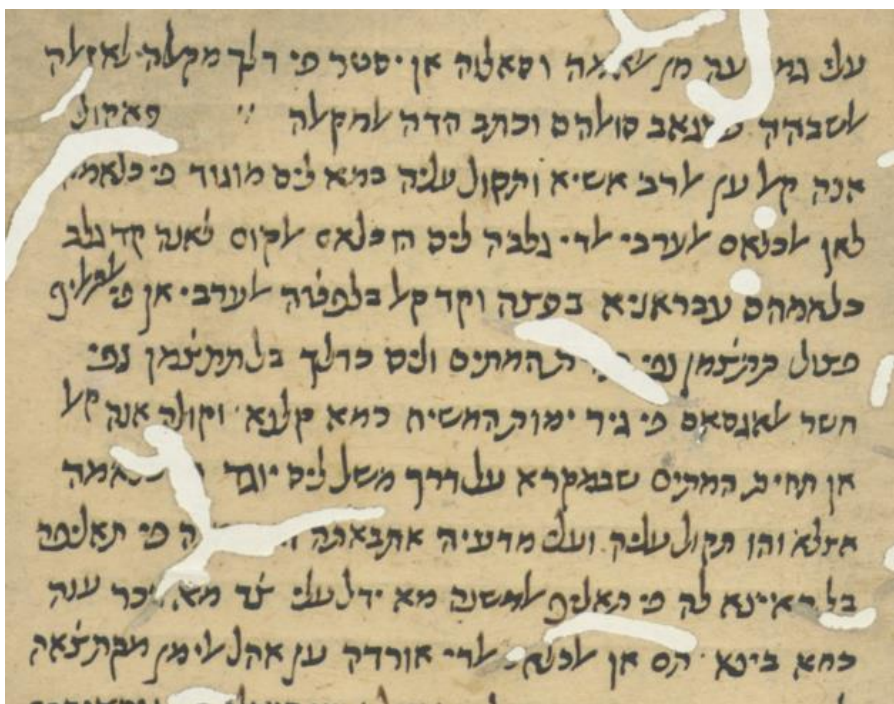 עלי גמאעה מן אלאמה וסאלוה אן יסטר פי דלך מקאלה לאזאלה
אלשבהה סולהם וכתב הדה אלמקאלה ״ פאקול
אנה קאל ען אלרב אשיא ותקול עליה במא ליס מוגוד פי כלאמה
לאן אלכלאם אלערבי אלדי גלבה ליס הו כלאם אלקום לאנה קד גלב
כלאמהם עבראניא בעינה וקד קאל בלפטה אלערבי אן פי אלתאליף
פצול תתצ֗מן נפי המתים וליס כדלך בל תתצ֗מן נפי
חשר אלאגסאם פי גיר ימות המשיח כמא קלנא וקולה אנה קאל
אן תחיית המתים שבמקרא על דרך משל ליס יוגד כלאמה
אצלא והו תקול עליה ועלי מדעיה אתבאתה פי תאליפה
בל ראיינא לה פי תאליף אלמשנה מא ידל עלי צ֗ד מא דכר ענה
כמא בינא תם אן אלכלאם אלדי אורדה ען אהל אלימן מקתצ֗אה